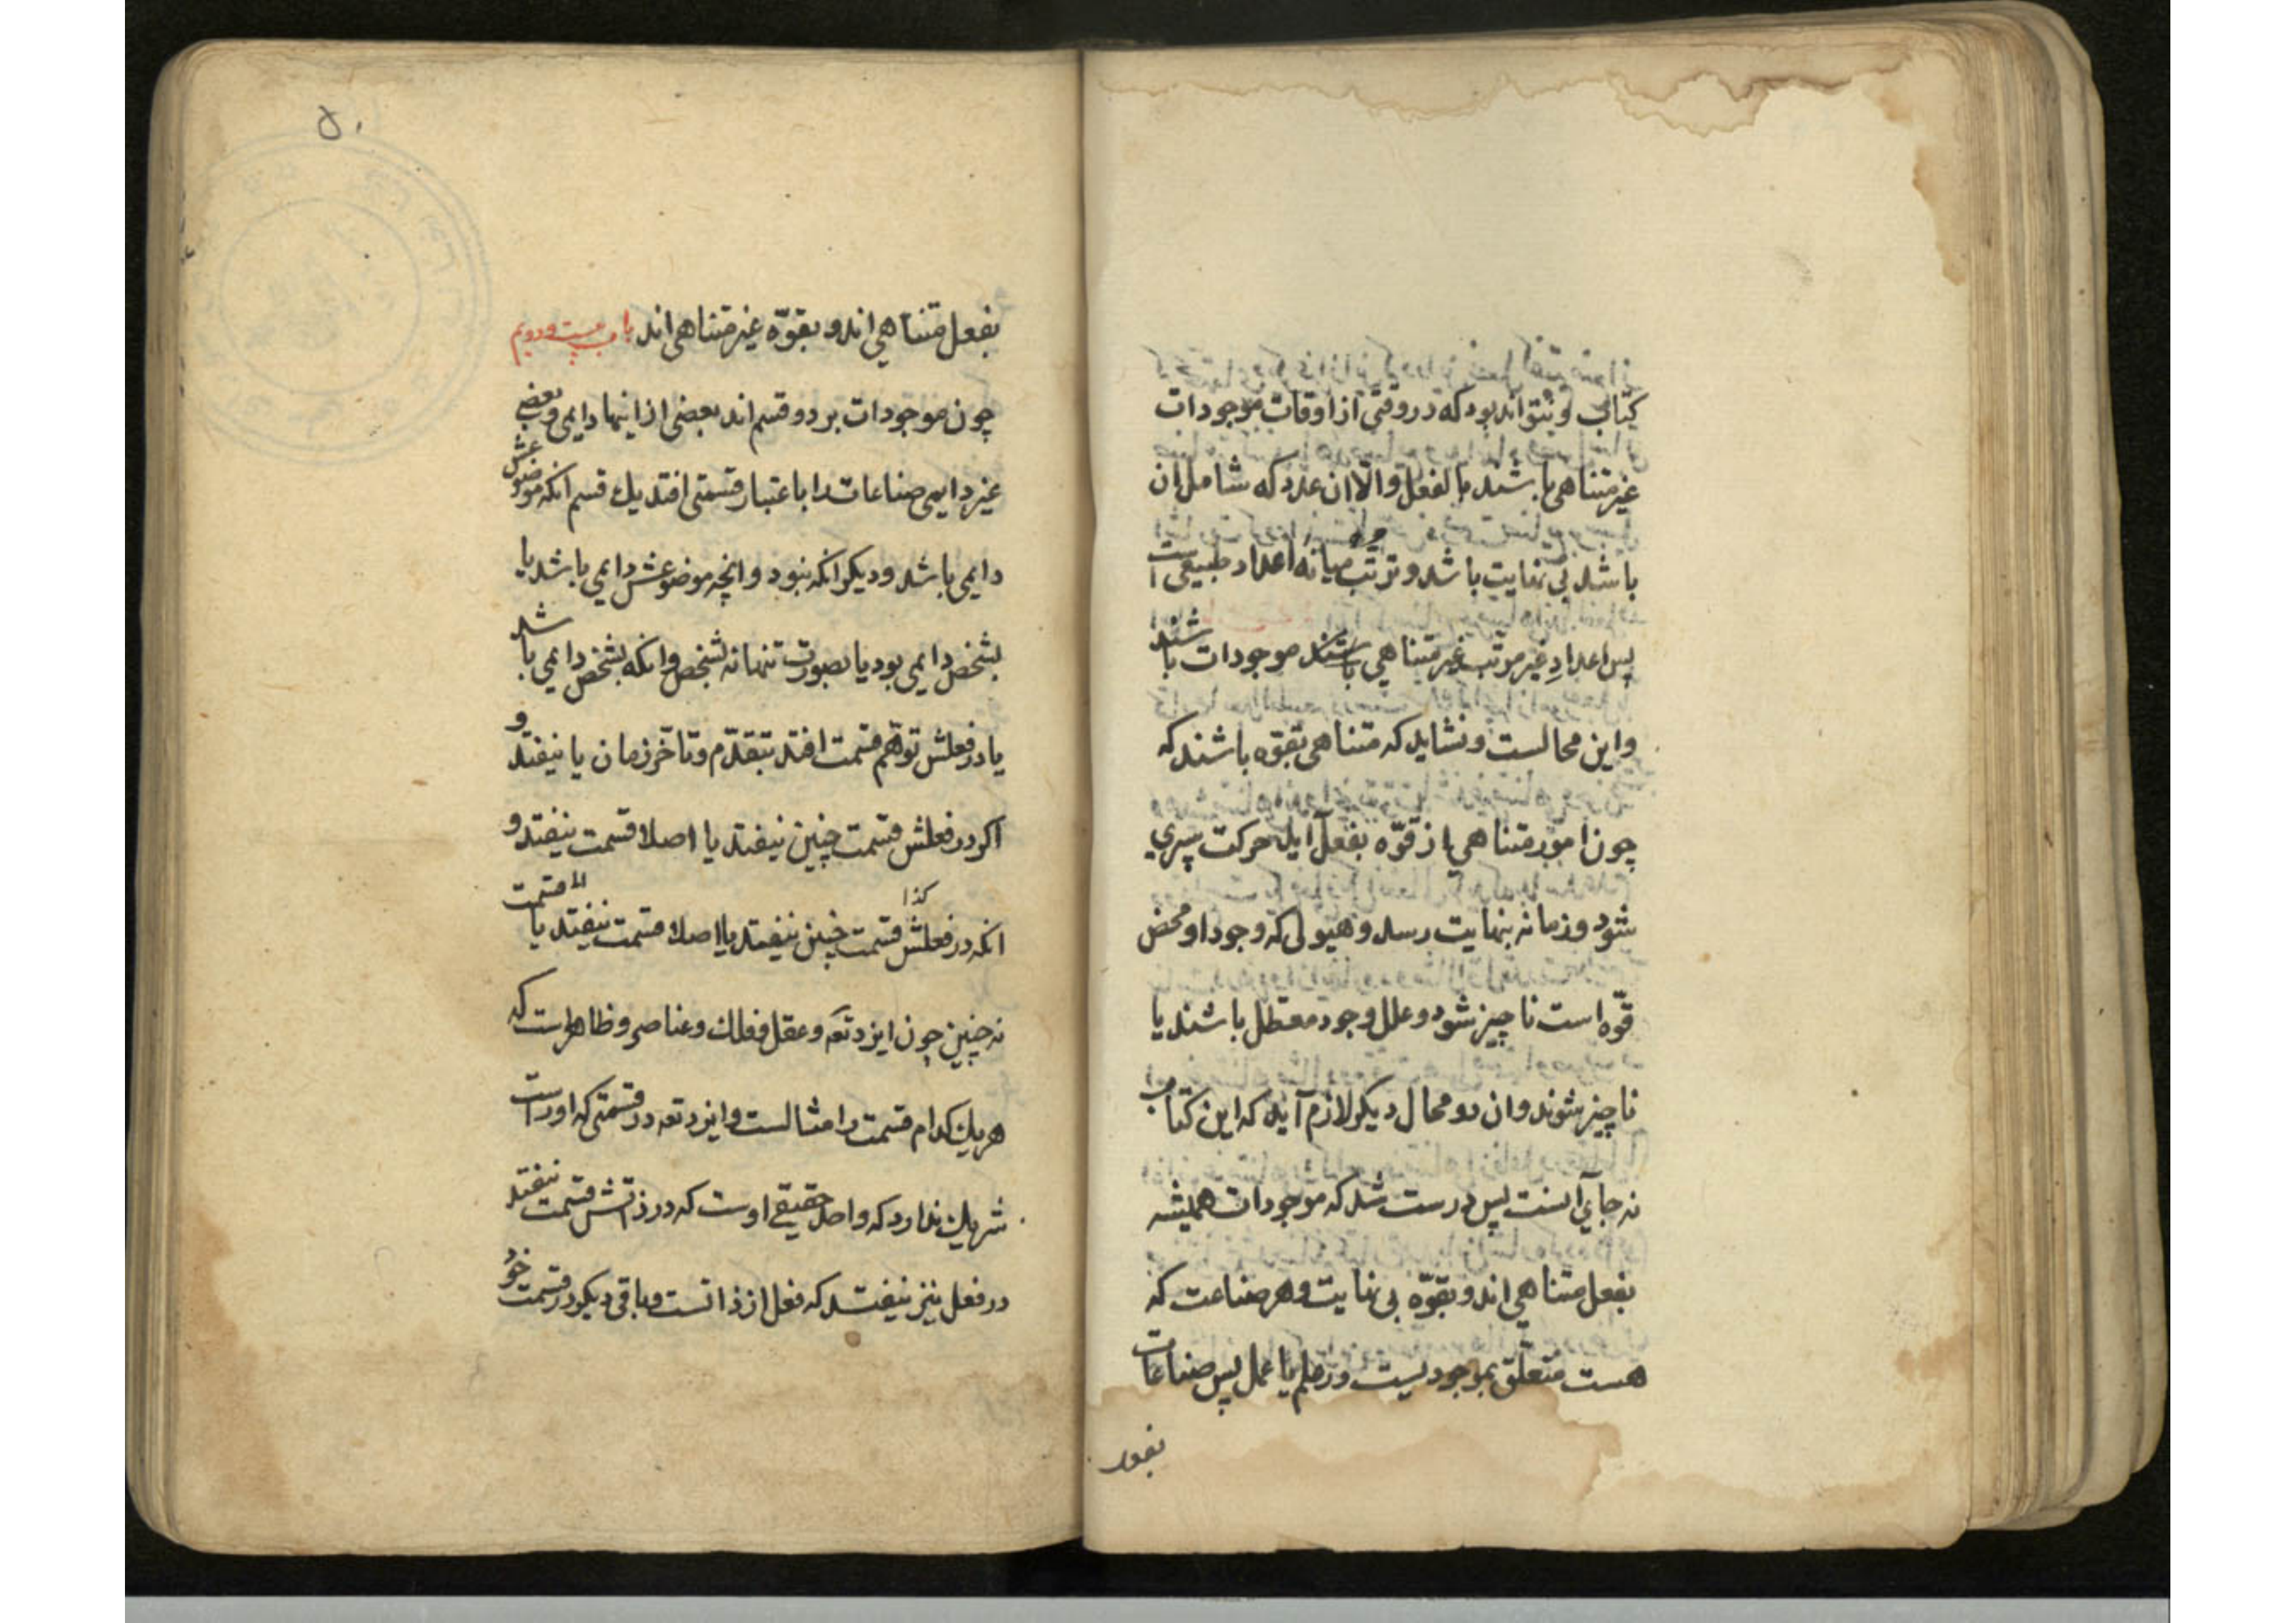 کتاب و نتواند بود که در وقتی از اوقات موجودات
غیر متناهی باشند بالفعل والّا ان عدد که شامل ان
باشد بی نهایت باشد و ترتب میانه اعداد طبیعی است
پس اعدادِ غیر مرتب غیر متناهی باشند موجودات باشند
و این محالست و نشاید که متناهی بقوّه باشند که
چون امور متناهی از قوّه بفعل آید حرکت سپری
شود و زمانه بنهایت رسد و هیولی که وجود او محض
قوّه است ناچیز شود و علل وجود معطل باشند یا
ناچیز شوند و ان دو محال دیکر لازم آید که این کتاب
نه جای آنست پس درست شد که موجودات همیشه
بفعل متناهی اند و بقوّه بی نهایت و هر صناعت که
هست متعلق بموجودیست در علم یا عمل پس صناعات
۵۰
بفعل متناهی اند و بقوّه غیر متناهی اند باب بیست و دویم
چون موجودات بر دو قسم اند بعضی از اینها دایمی و بعضی
غیر دایمی صناعات را باعتبار قسمتی افتد یک قسم انکه موضوعش
دایمی باشد و دیکر انکه نبود و انچه موضوعش دایمی باشد یا
بشخص دایمی بود یا بصورت تنها نه بشخص و انکه بشخص دایمی باشد
یا در فعلش توهّم قسمت افتد بتقدّم و تاخّر زمان یا نیفتد و
اکر در فعلش قسمت چنین نیفتد یا اصلا قسمت نیفتد و
کذا
انکه در فعلش قسمت چنین نیفتد یا اصلا قسمت نیفتد یا قسمت
نه چنین چون ایزد تعه و عقل و فلک و عناصر و ظاهر است که
هر یک کدام قسمت را مثالست و ایزد تعه در قسمتی که اوراست
شریک ندارد که واحد حقیقی اوست که در ذاتش قسمت نیفتد
در فعل نیز نیفتد که فعل از ذاتست و باقی دیکر در قسمت خود